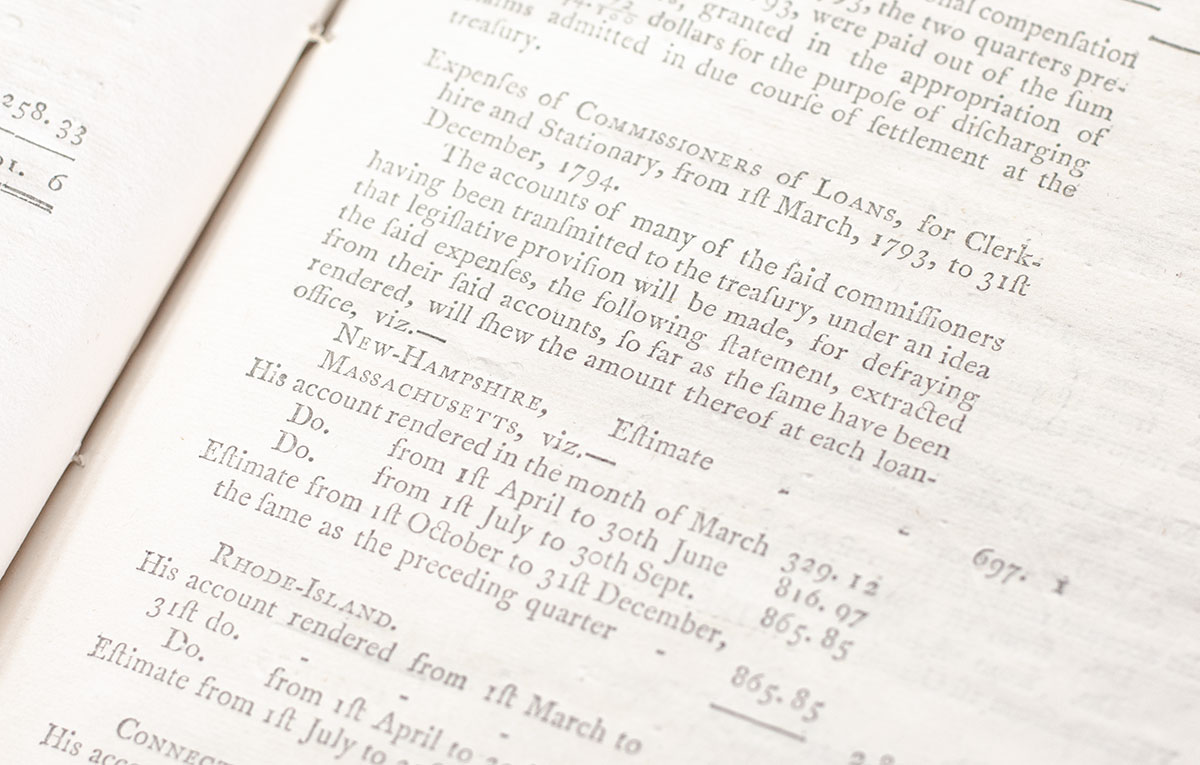 258. 33
6
compenſation
1793, the two quarters pre-
1793, were paid out of the ſum
dollars for the purpoſe of diſcharging
granted in the appropriation of
admitted in due courſe of ſettlement at the
treaſury.
Expenſes of COMMISSIONERS of LOANS, for Clerk-
hire and Stationary, from 1ſt March, 1793, to 31ſt
December, 1794.
The accounts of many of the ſaid commiſſioners
having been tranſmitted to the treaſury, under an idea
that legiſlative proviſion will be made, for defraying
the ſaid expenſes, the following ſtatement, extracted
from their ſaid accounts, ſo far as the ſame have been
rendered, will ſhew the amount thereof at each loan-
office, viz.—
NEW-HAMPSHIRE, Eſtimate - - 697. 1
MASSACHUSETTS, viz.—
His account rendered in the month of March 329. 12
Do. from 1ſt April to 30th June 816. 97
Do. from 1ſt July to 30th Sept. 865. 85
Eſtimate from 1ſt October to 31ſt December,
the ſame as the preceding quarter - 865. 85
RHODE-ISLAND.
His account rendered from 1ſt March to
31ſt do. - -
Do. from 1ſt April to
Eſtimate from 1ſt July to
CONNECT
His acc